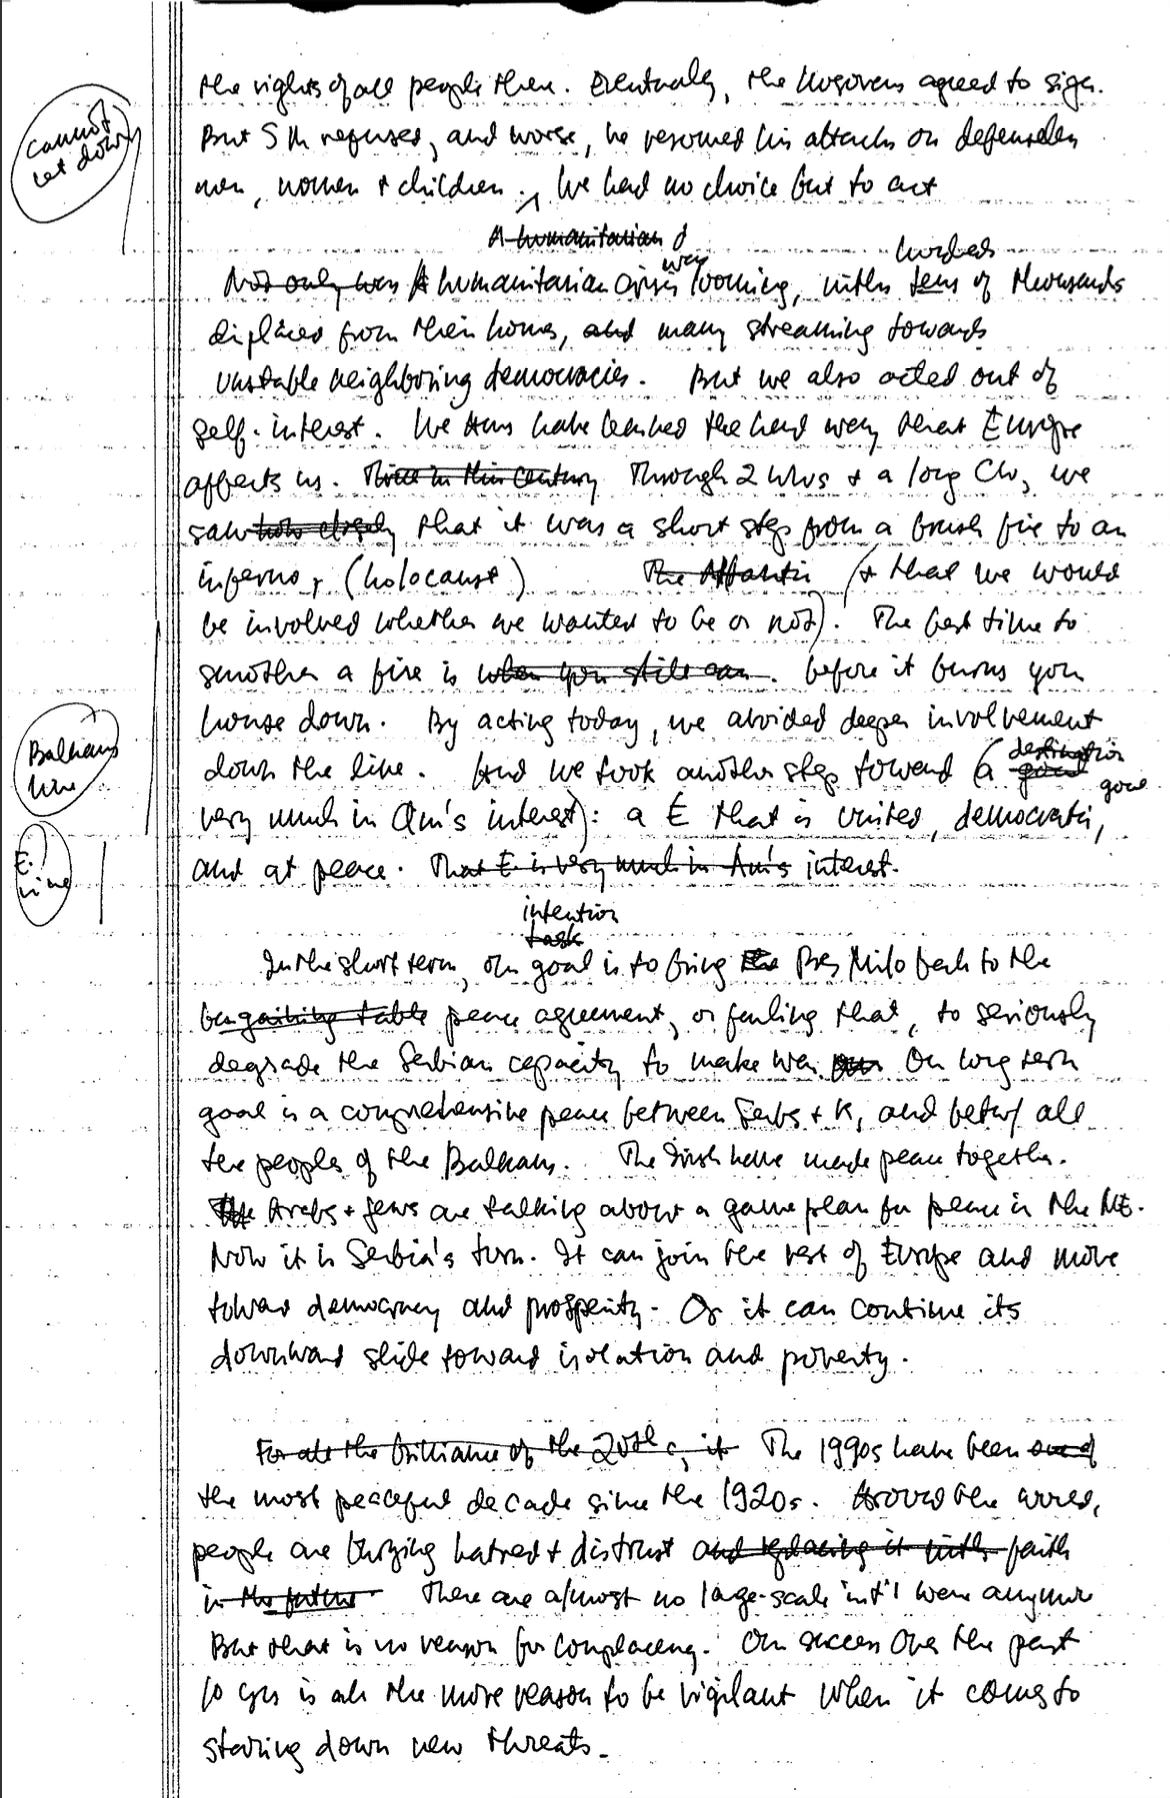 the rights of all people there. Eventually, the Kosovars agreed to sign.
cannot
let down
But SM refused, and worse, he resumed his attacks on defenseless
men, women + children. We had no choice but to act
A humanitarian
was
hundreds
Not only was A humanitarian crisis looming, with tens of thousands
displaced from their homes, and many streaming towards
unstable neighboring democracies. But we also acted out of
self-interest. We have learned the hard way that Europe
affects us. Twice in this century Through 2 WWs + a long CW, we
saw how closely that it was a short step from a brush fire to an
inferno, (holocaust) The Atlantic (+ that we would
be involved whether we wanted to be or not). The best time to
smother a fire is when you still can. before it burns your
house down. By acting today, we avoided deeper involvement
Balkans
line
destination
down the line. And we took another step toward (a goal
goal
very much in Am's interest): a E that is united, democratic,
E.
line
and at peace. That E is very much in Am's interest.
intention
task
In the short term, our goal is to bring the Pres Milo back to the
bargaining table peace agreement, or failing that, to seriously
degrade the Serbian capacity to make war. Our long term
goal is a comprehensive peace between Serbs + K, and betw/ all
the peoples of the Balkans. The Irish have made peace together.
The Arabs + Jews are talking about a game plan for peace in the ME.
Now it is Serbia's turn. It can join the rest of Europe and move
toward democracy and prosperity. Or it can continue its
downward slide toward isolation and poverty.
For all the brilliance of the 20th c, it The 1990s have been one of
the most peaceful decade since the 1920s. Around the world,
people are burying hatred + distrust and replacing it with faith
in the future There are almost no large-scale int'l wars anymore
But that is no reason for complacency. Our success over the past
10 yrs is all the more reason to be vigilant when it comes to
staring down new threats.